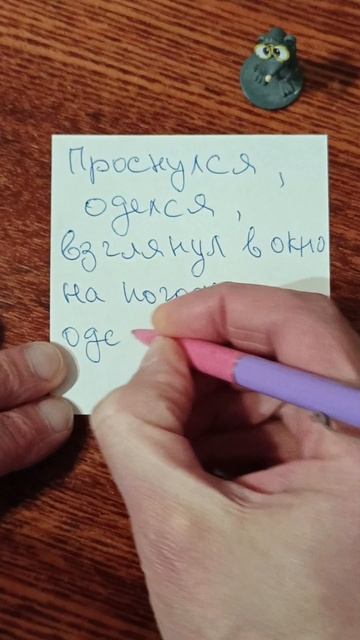 Проснулся,
оделся,
взглянул в окно
на
оде